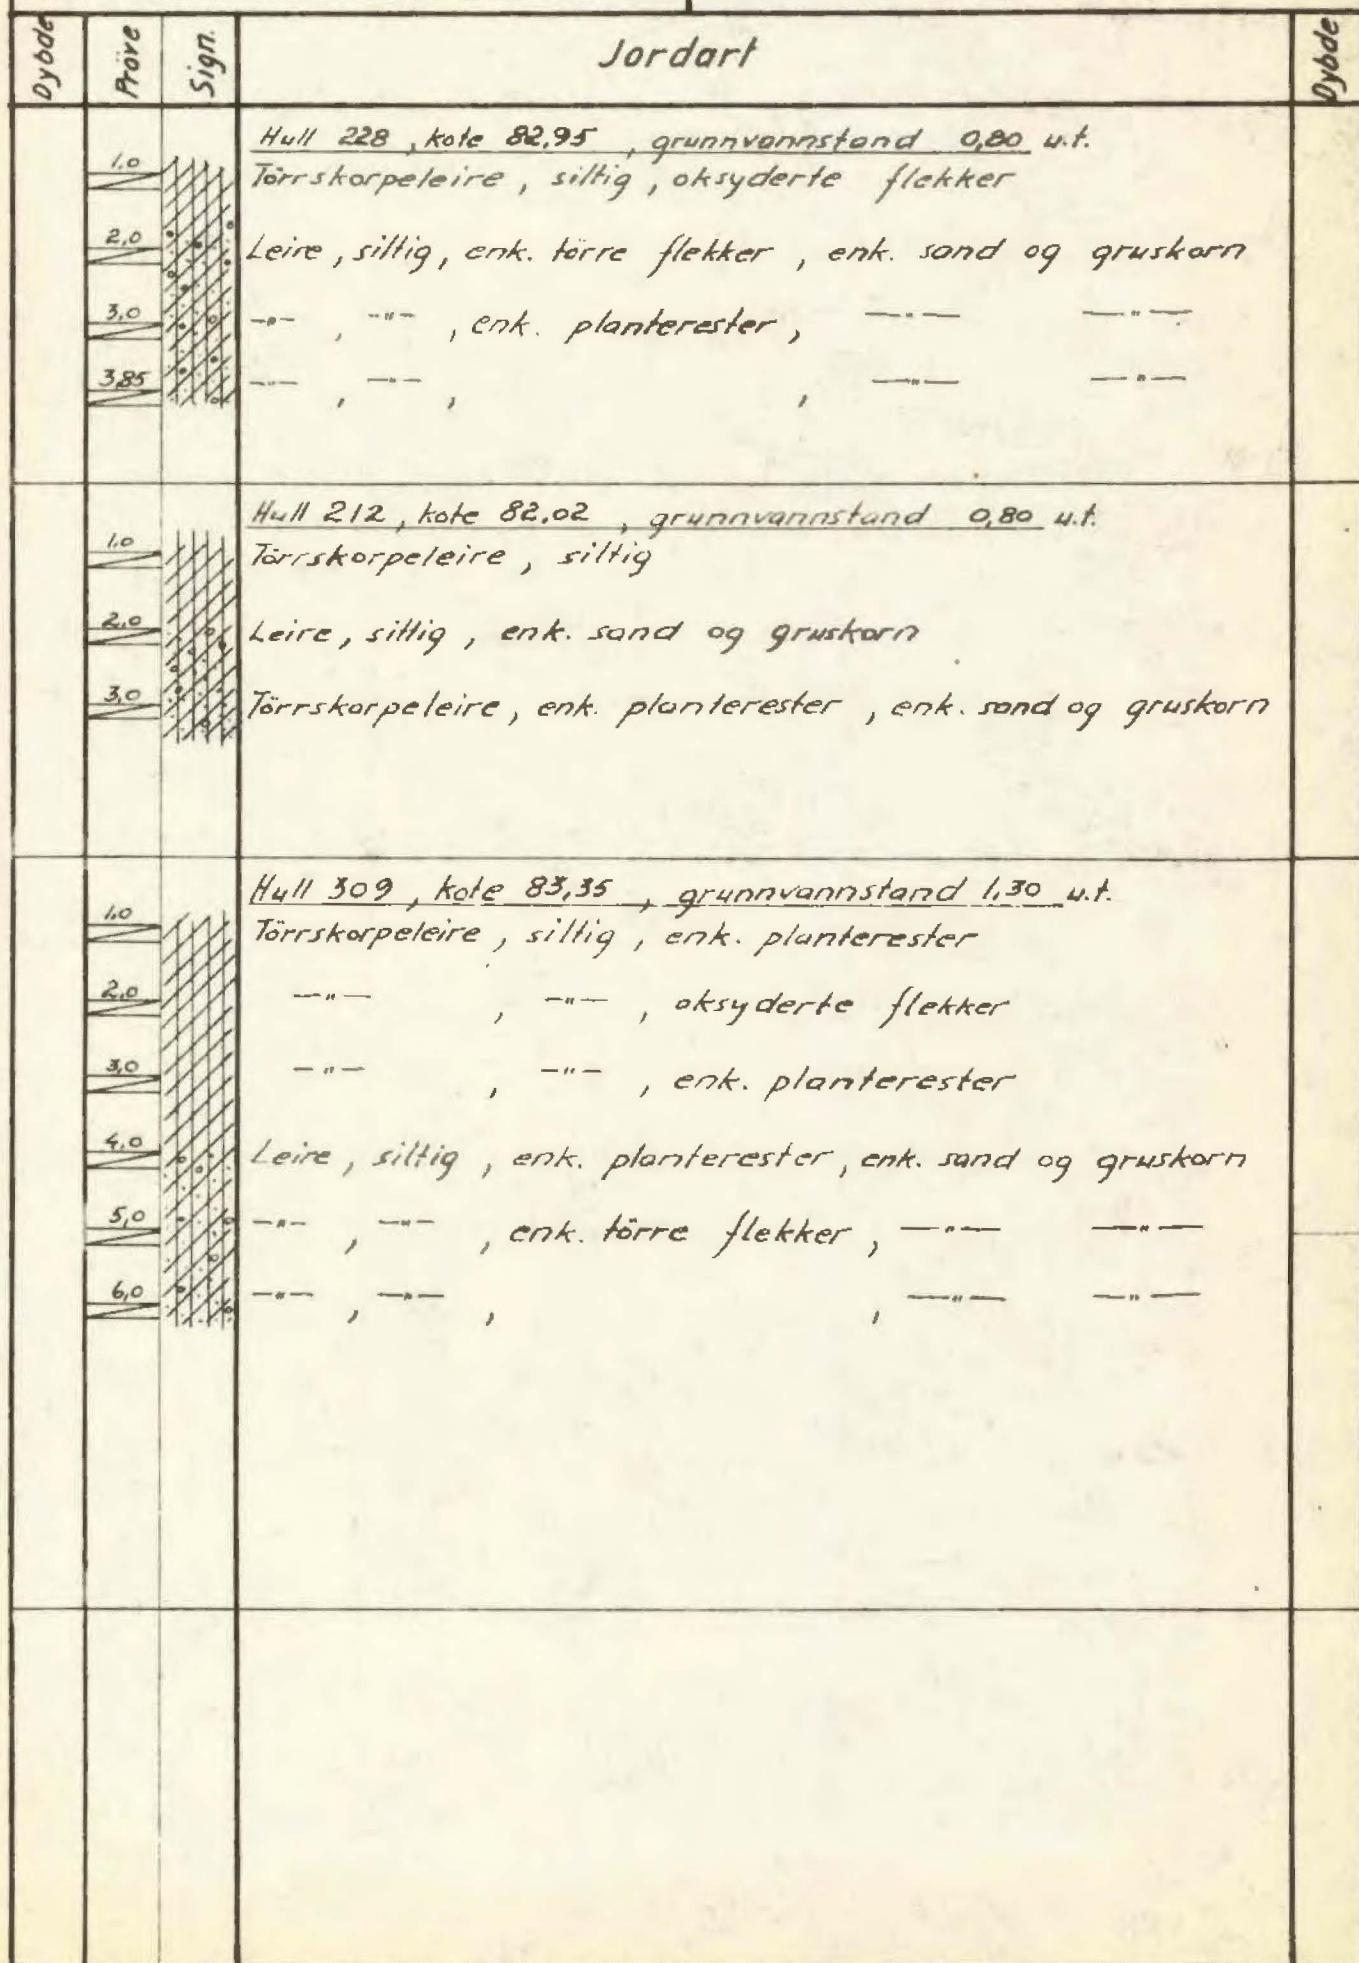 Dybde Pröve Sign. Jordart Dybde
Hull 228, kote 82,95, grunnvannstand 0,80 u.t.
1,0 Törrskorpeleire, siltig, oksyderte flekker
2,0 Leire, siltig, enk. törre flekker, enk. sand og gruskorn
3,0 —"—, —"—, enk. planterester, —"— —"—
3,85 —"—, —"—, , —"— —"—
Hull 212, kote 82,02, grunnvannstand 0,80 u.t.
1,0 Törrskorpeleire, siltig
2,0 Leire, siltig, enk. sand og gruskorn
3,0 Törrskorpeleire, enk. planterester, enk. sand og gruskorn
Hull 309, kote 83,35, grunnvannstand 1,30 u.t.
1,0 Törrskorpeleire, siltig, enk. planterester
2,0 —"—, —"—, oksyderte flekker
3,0 —"—, —"—, enk. planterester
4,0 Leire, siltig, enk. planterester, enk. sand og gruskorn
5,0 —"—, —"—, enk. törre flekker, —"— —"—
6,0 —"—, —"—, , —"— —"—